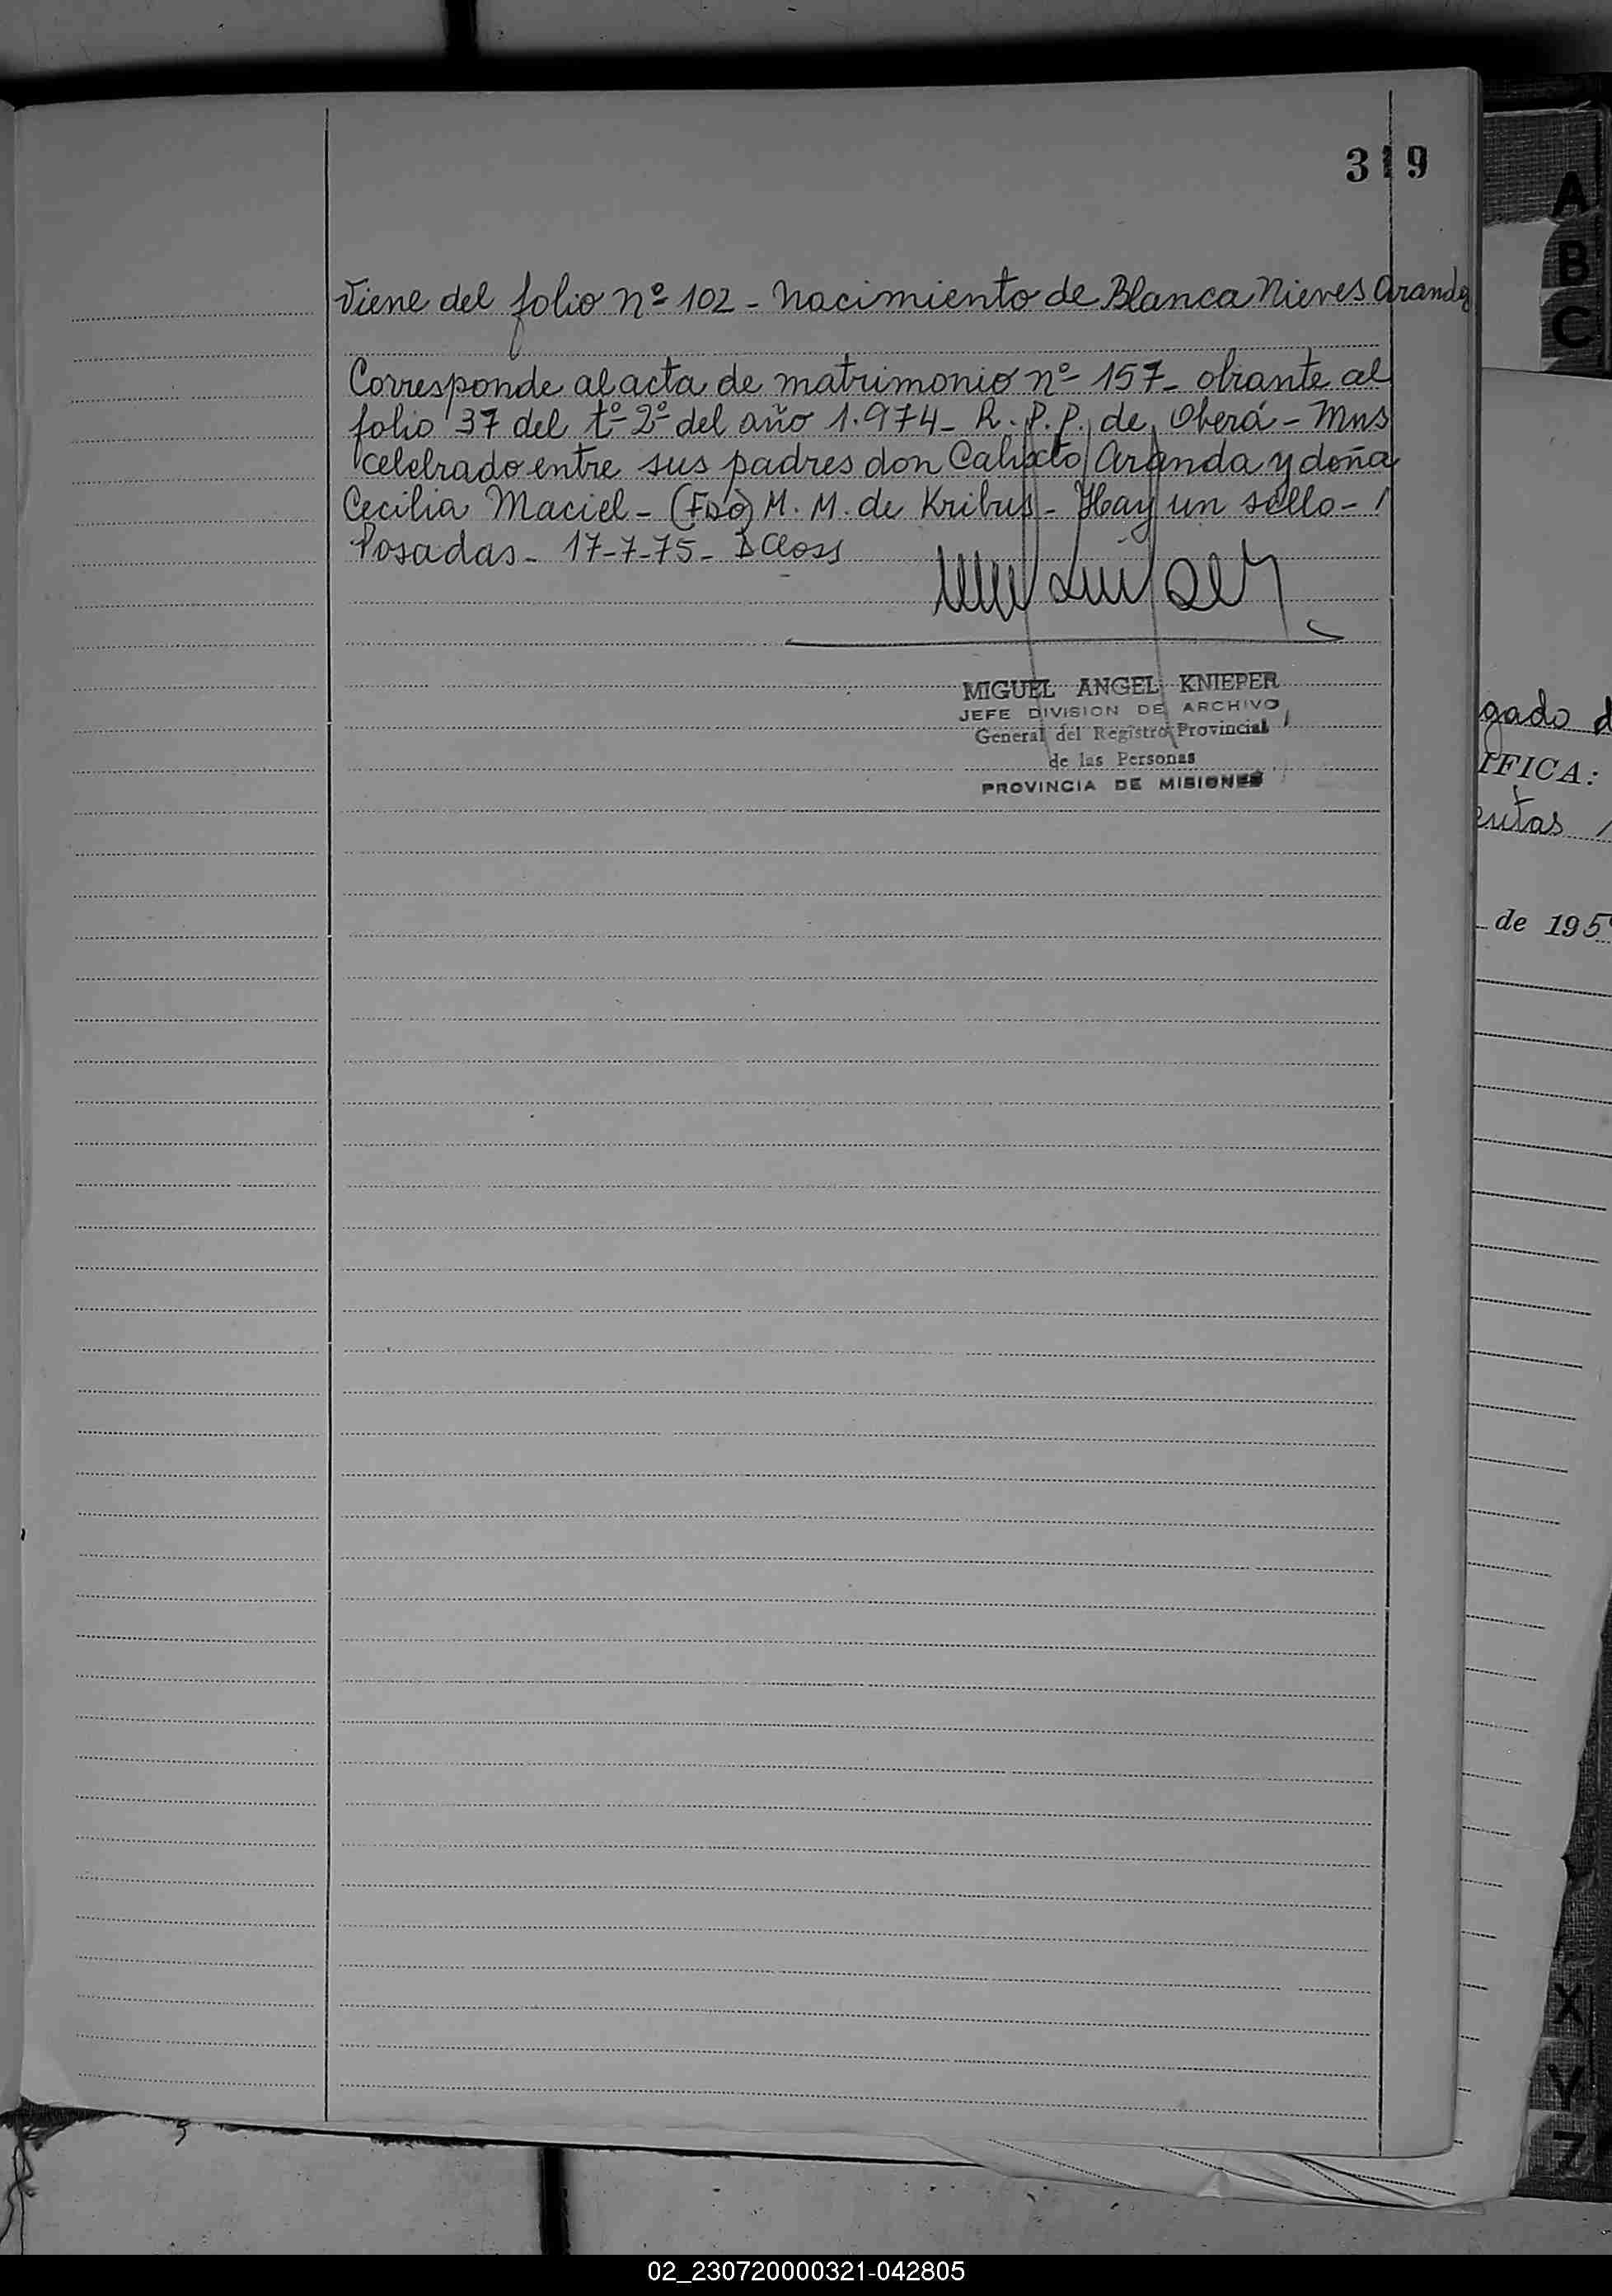 319
Viene del folio nº 102 - Nacimiento de Blanca Nieves Aranda
Corresponde al acta de matrimonio nº 157- obrante al
folio 37 del tº 2º del año 1.974- R. P. P. de Oberá - Mns
celebrado entre sus padres don Calixto Aranda y doña
Cecilia Maciel - (Fdo) M. M. de Kribus - Hay un sello - /
Posadas - 17-7-75 - D Closs
MIGUEL ANGEL KNIEPER
JEFE DIVISION DE ARCHIVO
General del Registro Provincial
de las Personas
PROVINCIA DE MISIONES
gado d
IFICA:
de 195
A
B
C
X
Y
Z
02_230720000321-042805